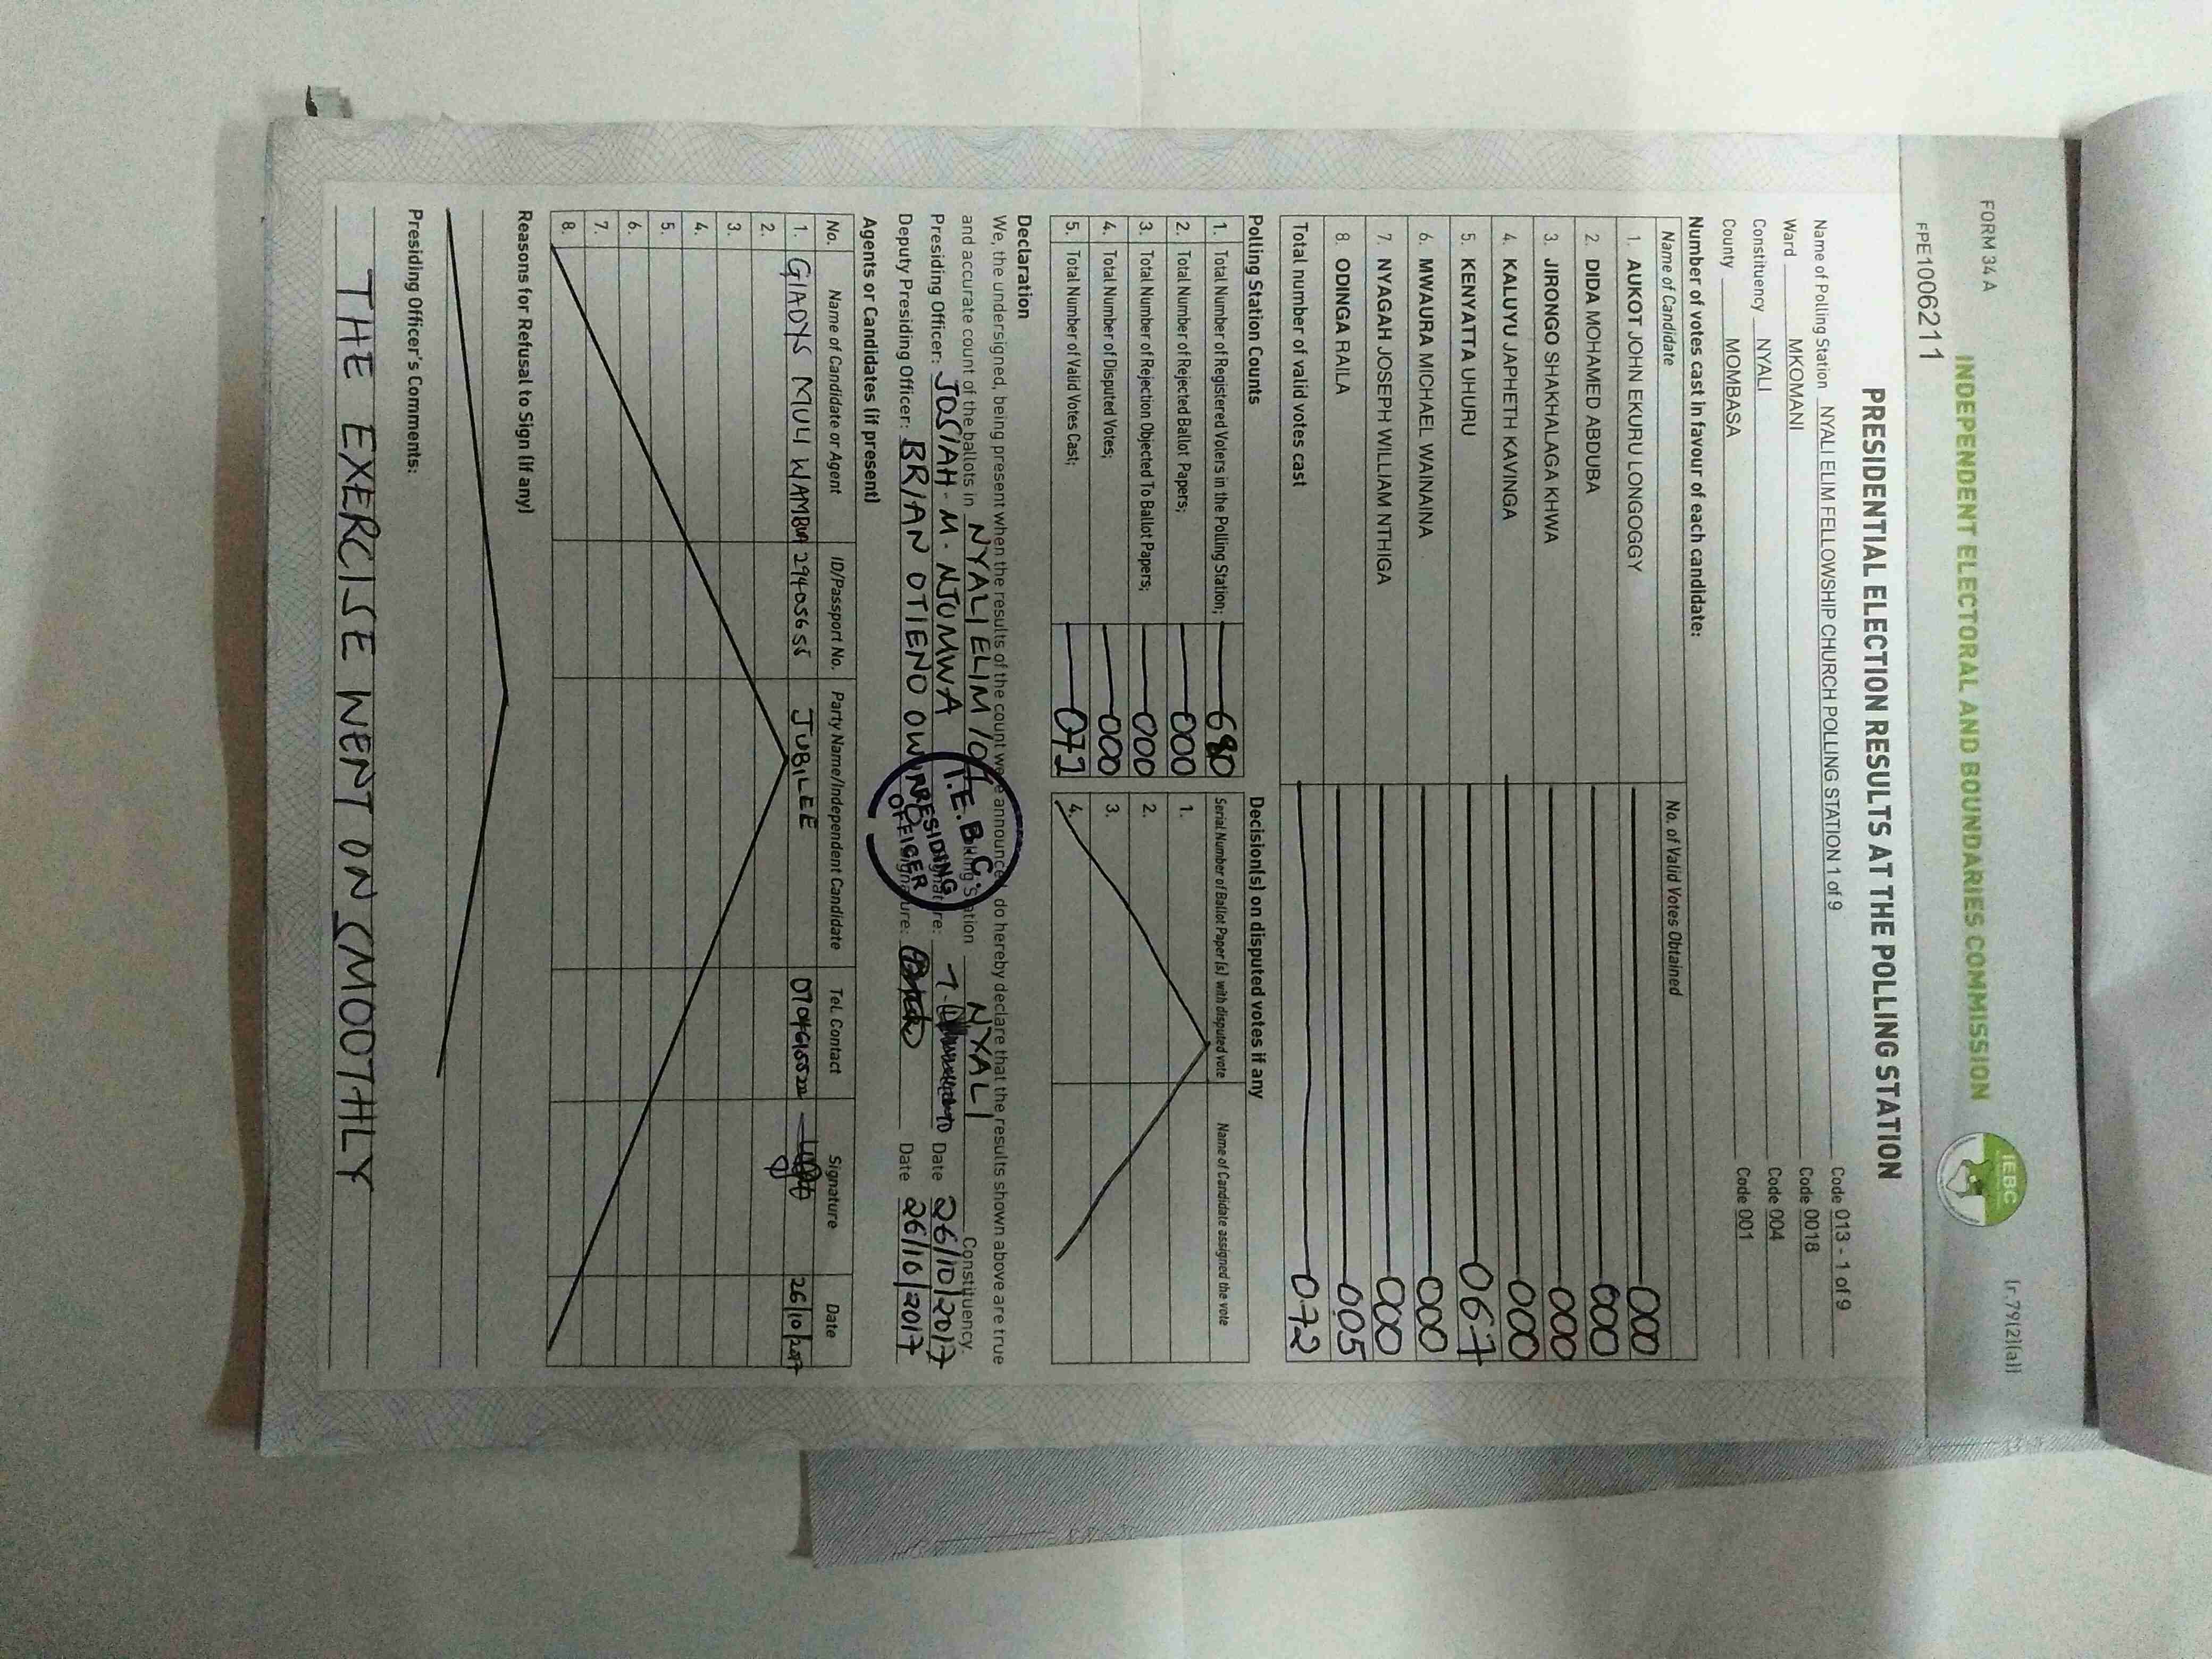 FORM 34A (r.79(2)(a))
INDEPENDENT ELECTORAL AND BOUNDARIES COMMISSION
IEBC
FPE1006211
PRESIDENTIAL ELECTION RESULTS AT THE POLLING STATION
Name of Polling Station NYALI ELIM FELLOWSHIP CHURCH POLLING STATION 1 of 9 Code 013 - 1 of 9
Ward MKOMANI Code 0018
Constituency NYALI Code 004
County MOMBASA Code 001
Number of votes cast in favour of each candidate:
Name of Candidate No. of Valid Votes Obtained
1. AUKOT JOHN EKURU LONGOGGY 000
2. DIDA MOHAMED ABDUBA 000
3. JIRONGO SHAKHALAGA KHWA 000
4. KALUYU JAPHETH KAVINGA 000
5. KENYATTA UHURU 067
6. MWAURA MICHAEL WAINAINA 000
7. NYAGAH JOSEPH WILLIAM NTHIGA 000
8. ODINGA RAILA 005
Total number of valid votes cast 072
Polling Station Counts Decision(s) on disputed votes if any
Serial Number of Ballot Paper (s) with disputed vote Name of Candidate assigned the vote
1. Total Number of Registered Voters in the Polling Station; 1.
2. Total Number of Rejected Ballot Papers; 000 2.
3. Total Number of Rejection Objected To Ballot Papers; 000 3.
4. Total Number of Disputed Votes; 000 4.
5. Total Number of Valid Votes Cast; 072
Declaration
We, the undersigned, being present when the results of the count were announced, do hereby declare that the results shown above are true
and accurate count of the ballots in NYALI ELIM Polling Station NYALI Constituency.
Presiding Officer: JOSIAH M. NJUMWA Signature: Date 26/10/2017
Deputy Presiding Officer: BRIAN OTIENO Signature: Date 26/10/2017
I.E.B.C.
PRESIDING
OFFICER
Agents or Candidates (if present)
No. Name of Candidate or Agent ID/Passport No. Party Name/Independent Candidate Tel. Contact Signature Date
1. GLADYS MULI WAMBUA 29405655 JUBILEE 26/10/2017
2.
3.
4.
5.
6.
7.
8.
Reasons for Refusal to Sign (if any)
Presiding Officer's Comments:
THE EXERCISE WENT ON SMOOTHLY